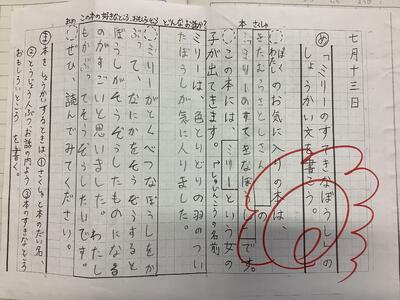 七月十三日
め 「ミリーのすてきなぼうし」の
しょうかい文を書こう。
本 さくしゃ
ぼく
わたしのお気に入りの本は、
きたむらさとしさんの
「ミリーのすてきなぼうし」です。
どんなお話か?
この本には、ミリーという女の
子が出てきます。
しゅじんこうの名前
ミリーは、色とりどりの羽のつい
たぼうしが気に入りました。
この本の好きなところ、おもしろいところ
ミリーがとくべつなぼうしをか
ぶって、なにかをそうぞうすると
ぼうしがそうぞうしたものになる
のがすごいと思いました。わたし
もかぶって、そうぞうしたいです。
ぜひ、読んでみてください。
ま 本をしょうかいするときは、①さくしゃと本のだい名、
②とうじょう人ぶつやお話の内よう、③本のすきなところ
おもしろいところを書く。